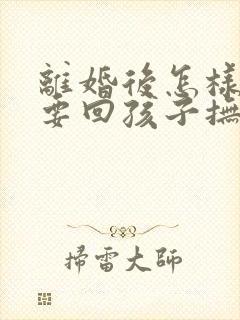 離婚後怎樣
要回孩子撫
掃雷大師